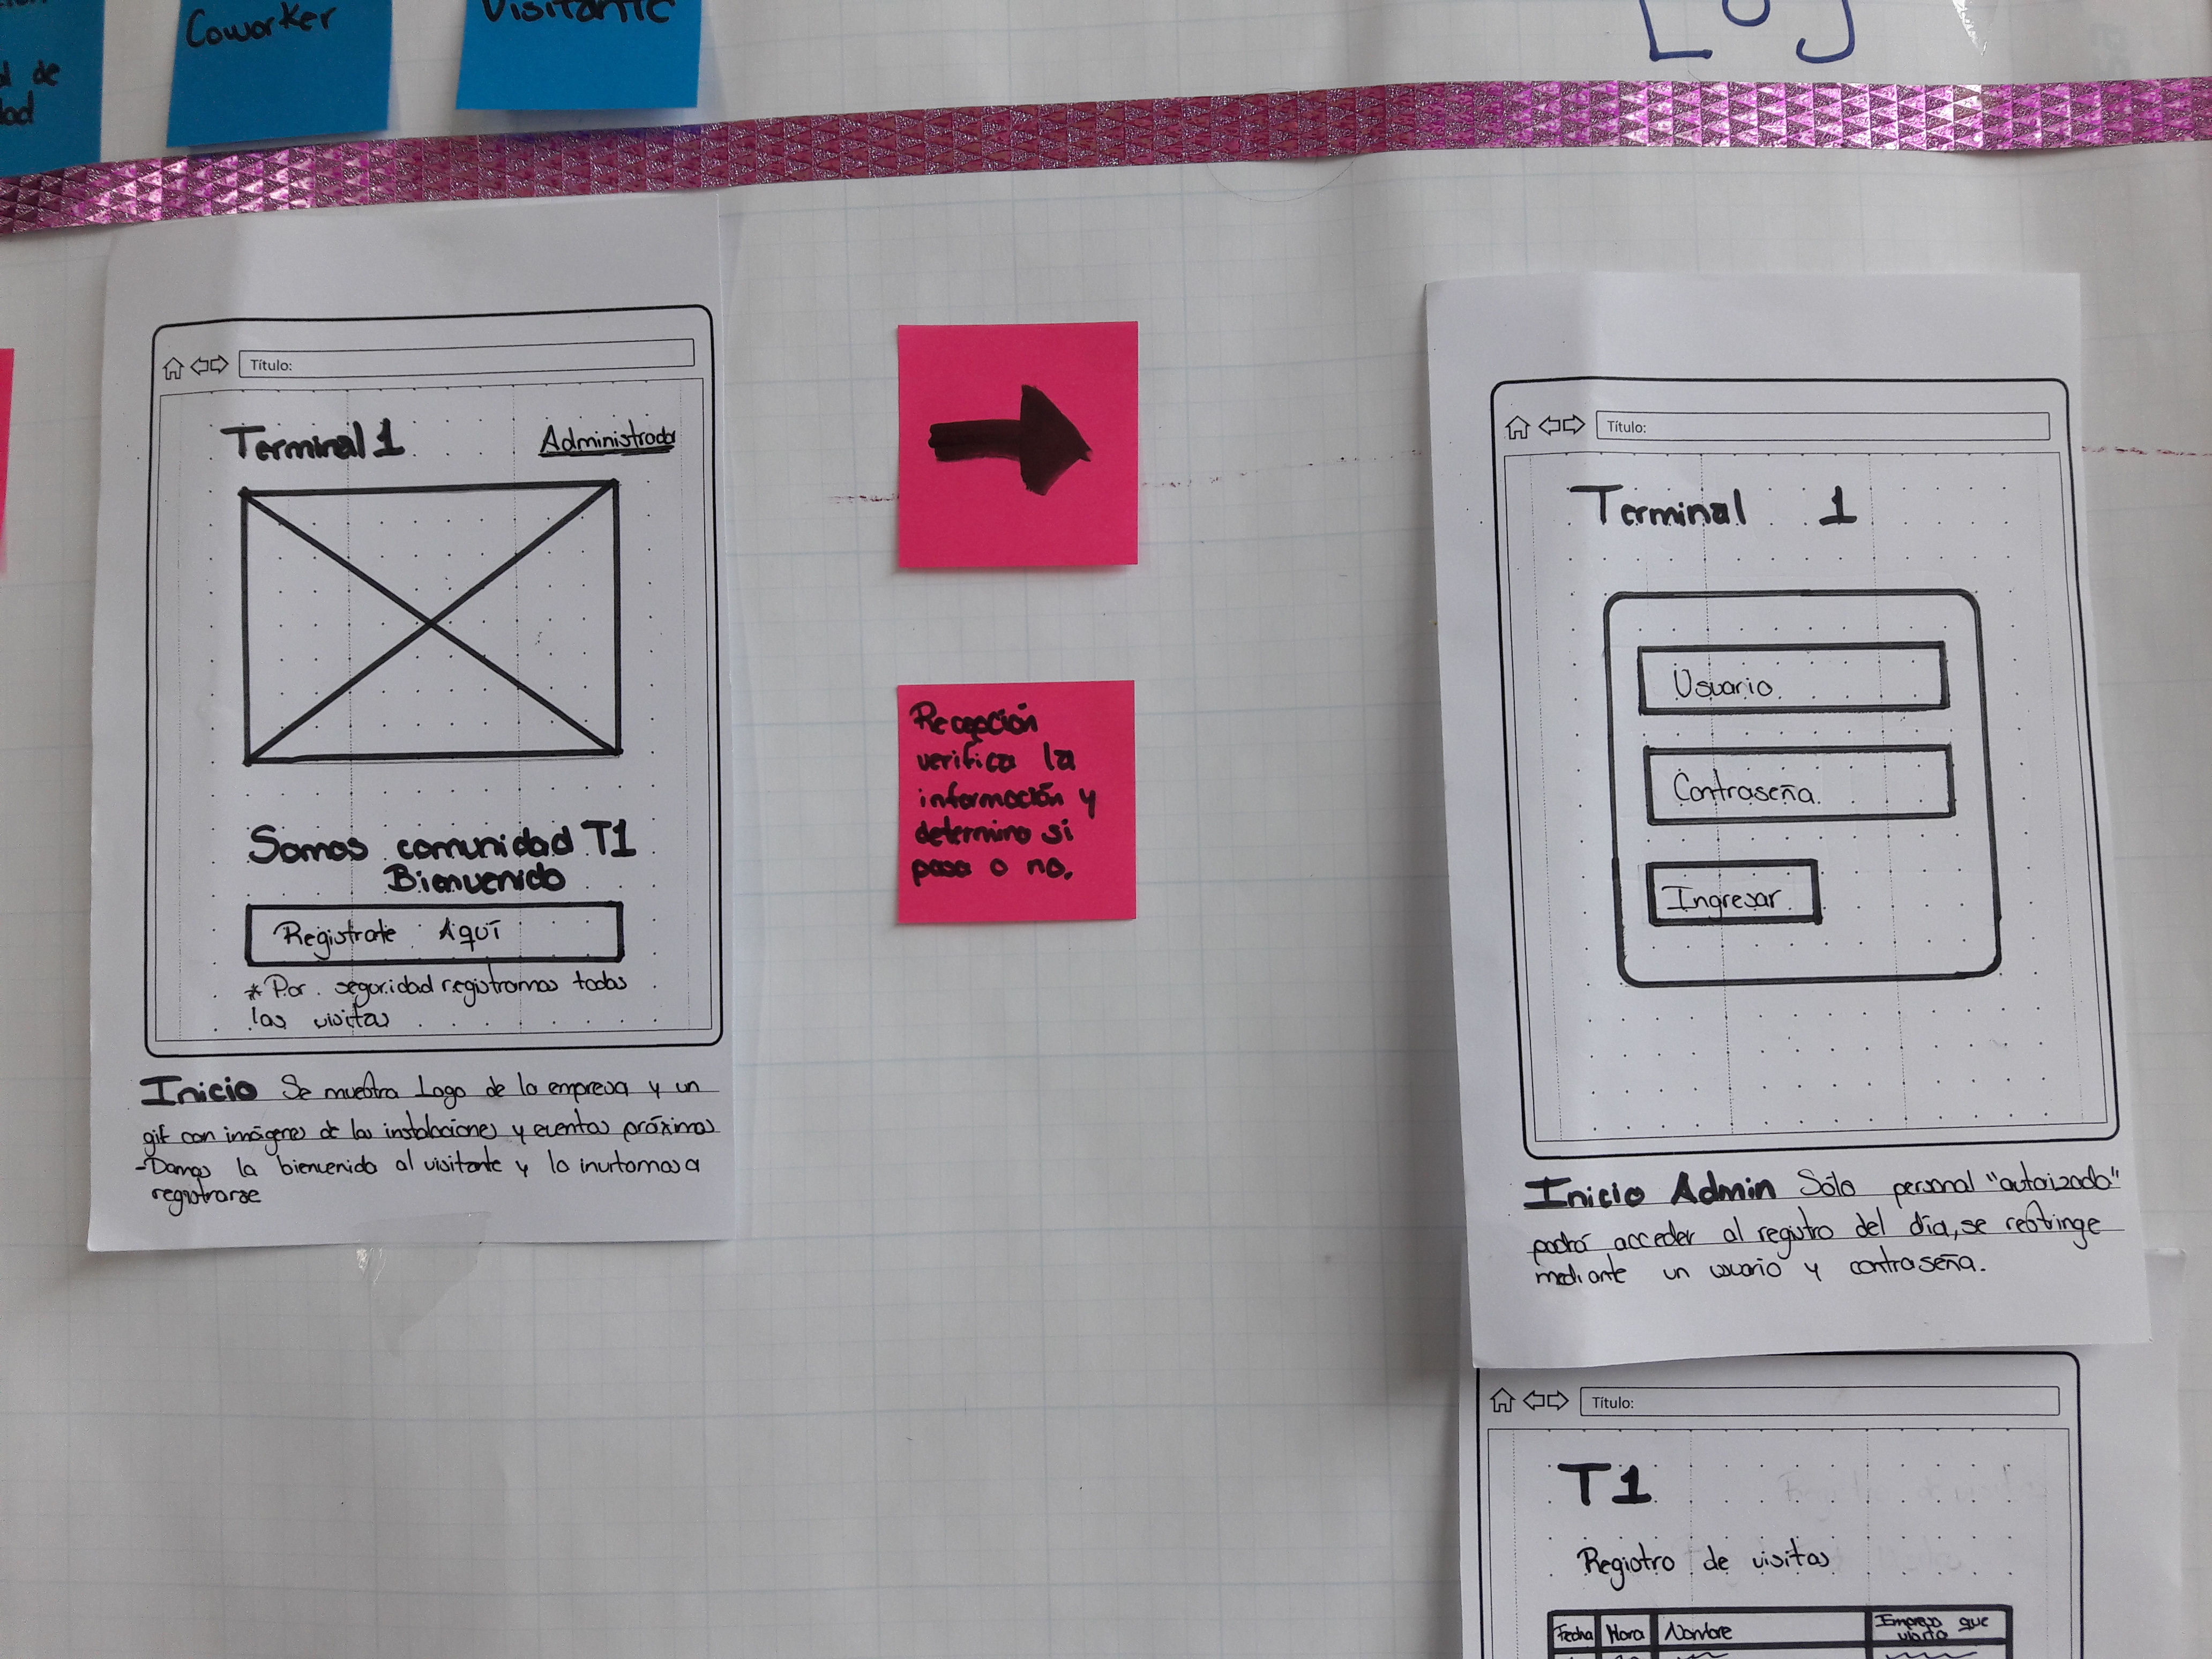 de
Coworker
Visitante
Título:
Terminal 1
Administrador
Somos comunidad T1
Bienvenido
Registrate Aquí
* Por seguridad registramos todas
las visitas
Inicio Se muestra Logo de la empresa y un
gif con imágenes de las instalaciones y eventos próximos
-Damos la bienvenida al visitante y lo invitamos a
registrarse
Recepción
verifica la
información y
determina si
pasa o no.
Título:
Terminal 1
Usuario
Contraseña
Ingresar
Inicio Admin Sólo personal "autorizado"
podrá acceder al registro del día, se restringe
mediante un usuario y contraseña.
Título:
T1
Registro de visitas
Fecha Hora Nombre Empresa que
visita